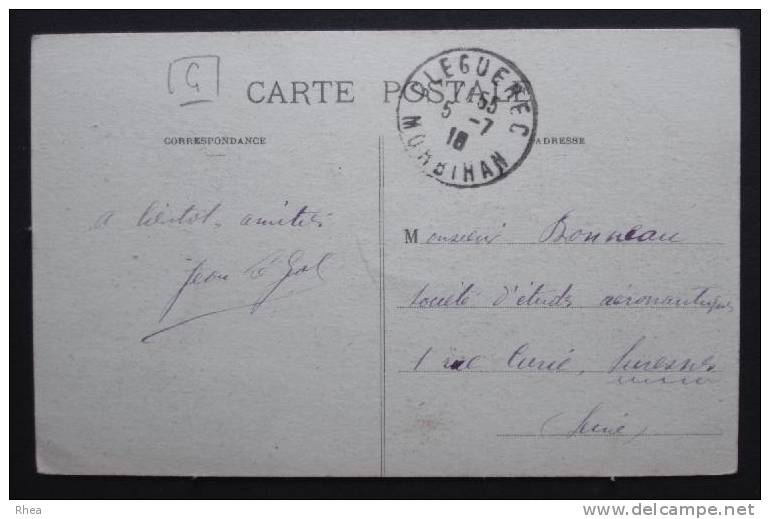 G
CARTE POSTALE
CLEGUEREC
7 55
5 -7
18
MORBIHAN
CORRESPONDANCE
ADRESSE
a bientôt, amitiés
Jean Le Gal
Monsieur Bonneau
société d'études aéronautiques
1 rue Curie, Suresnes
(Seine)
Rhea
www.delcampe.net